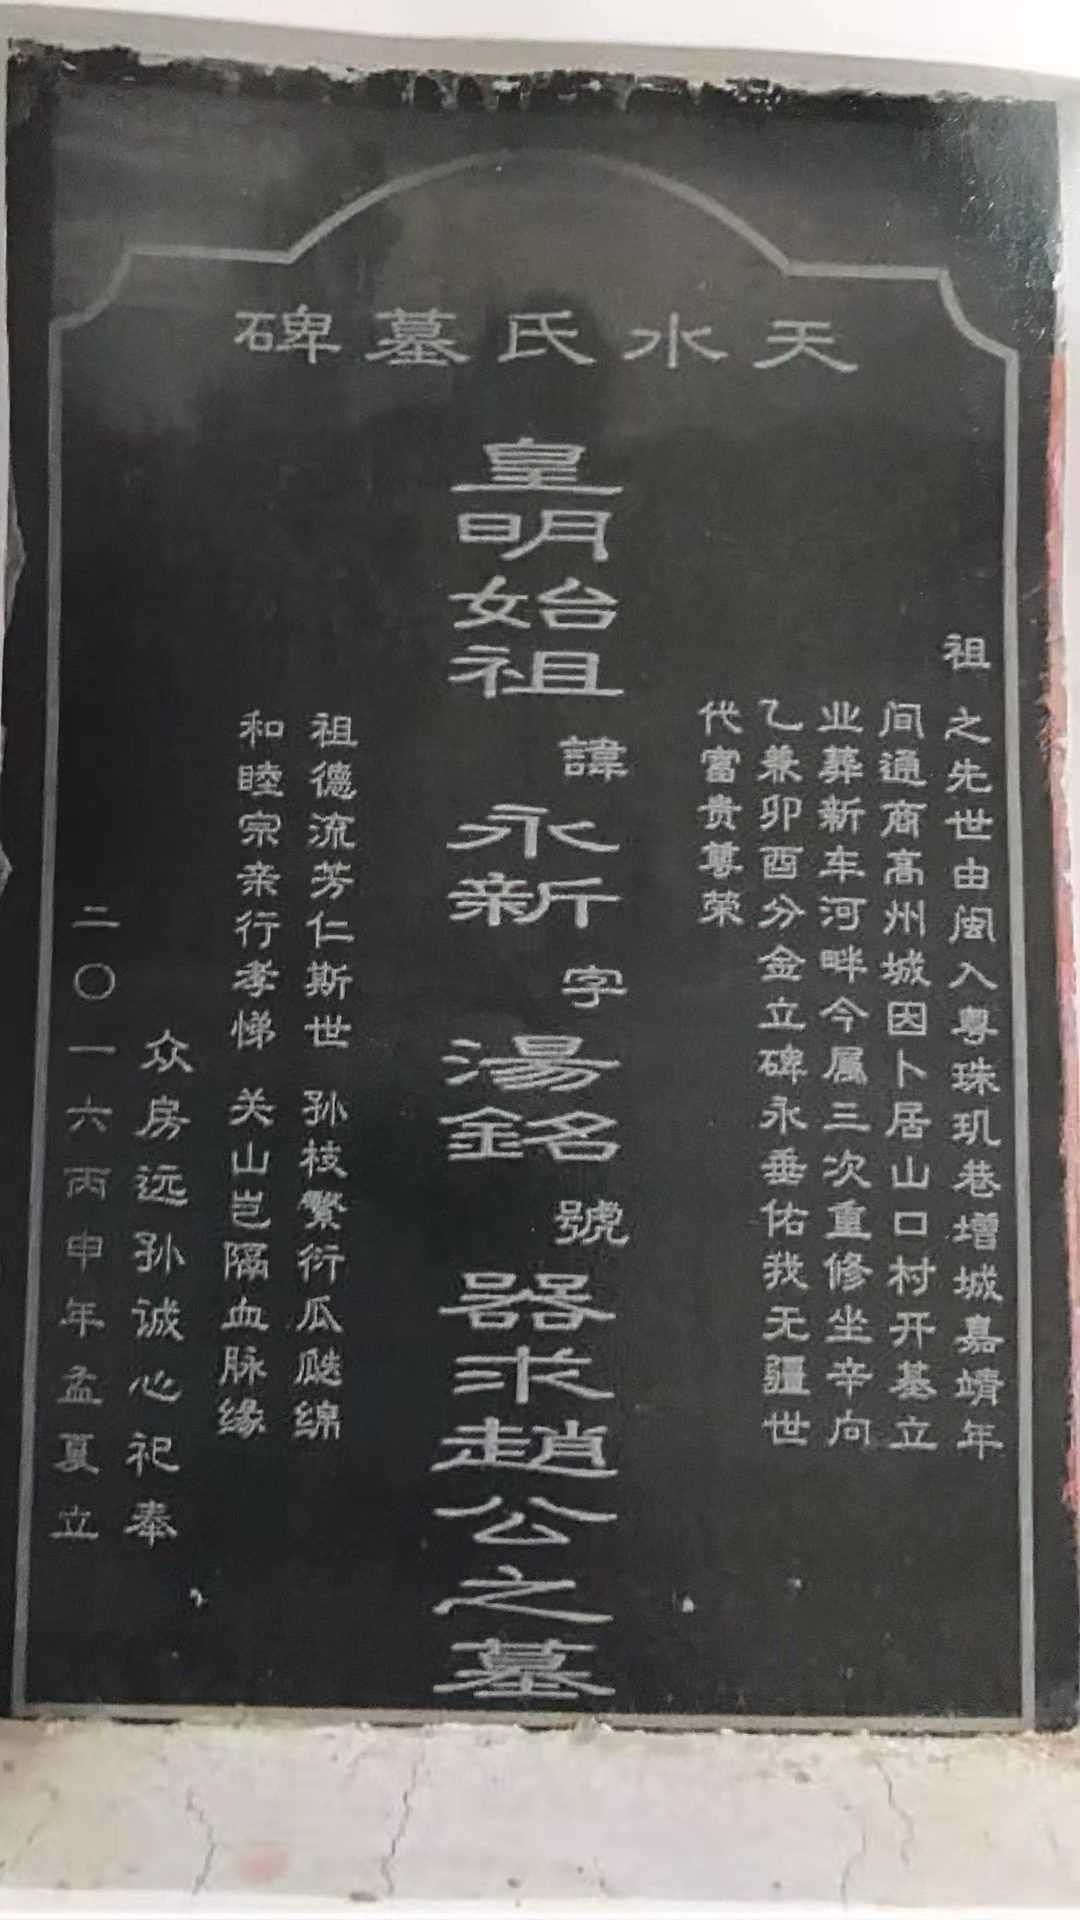 天水氏墓碑
祖之先世由闽入粤珠玑巷增城嘉靖年
间通商高州城因卜居山口村开基立
业葬新车河畔今属三次重修坐辛向
乙兼卯酉分金立碑永垂佑我无疆世
代富贵尊荣
皇明始祖諱永新字湯銘號器求趙公之墓
祖德流芳仁斯世 孙枝繁衍瓜瓞绵
和睦宗亲行孝悌 关山岂隔血脉缘
众房远孙诚心祀奉
二〇一六丙申年孟夏立